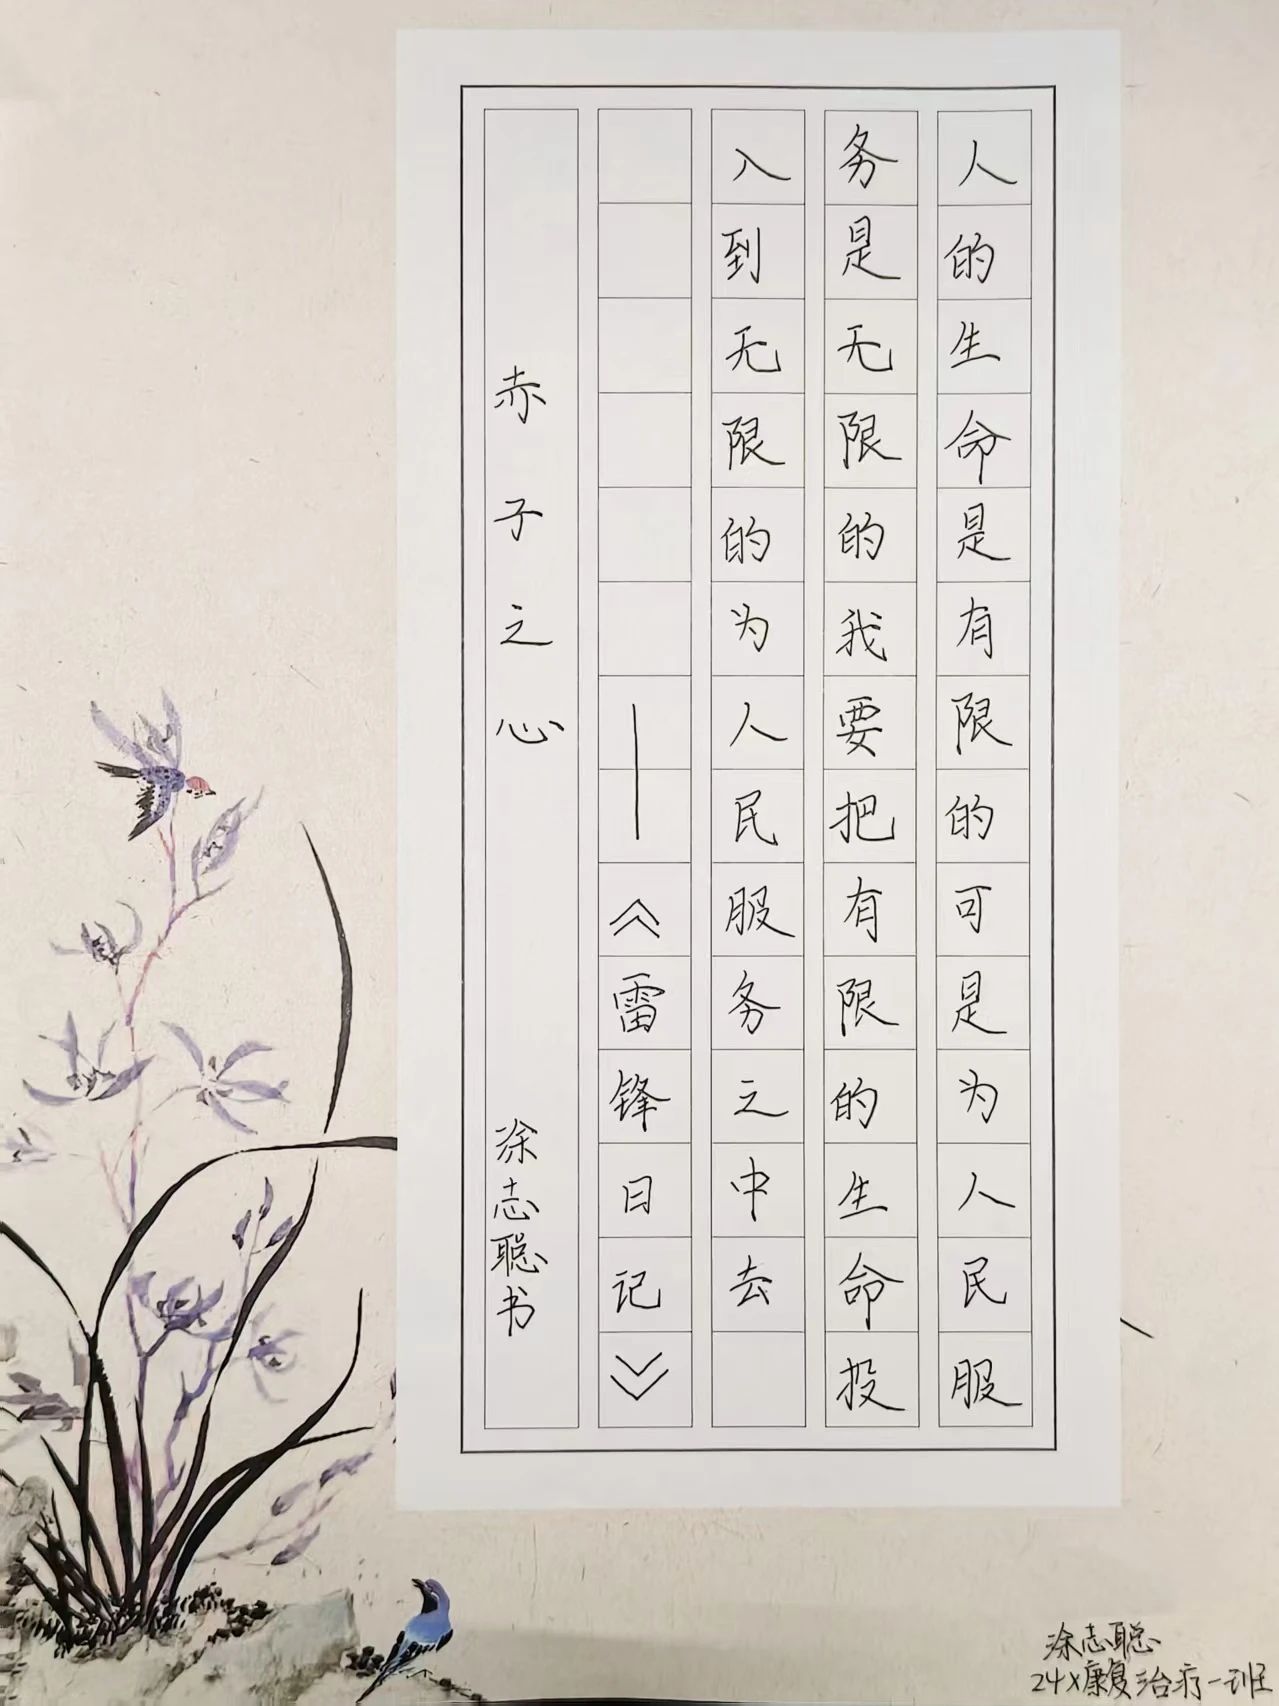 人的生命是有限的可是为人民服
务是无限的我要把有限的生命投
入到无限的为人民服务之中去
——《雷锋日记》
赤子之心 涂志聪书
涂志聪
24x康复治疗一班